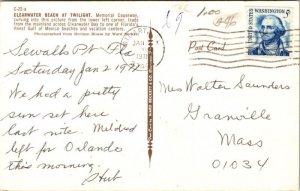 C-23 a
CLEARWATER BEACH AT TWILIGHT. Memorial Causeway,
curving into this picture from the lower left corner, leads
from the mainland across Clearwater Bay to one of Florida's
finest Gulf of Mexico beaches and vacation centers.
Sewalls Pt Fla
Saturday Jan 2 1971
We had a pretty
sun set here
last nite. Mildred
left for Orlando
this morning.
Hub
1.00
Post Card
U.S. POSTAGE
WASHINGTON
5¢
JAN
PM
Mrs Walter Saunders
Granville
Mass
01034